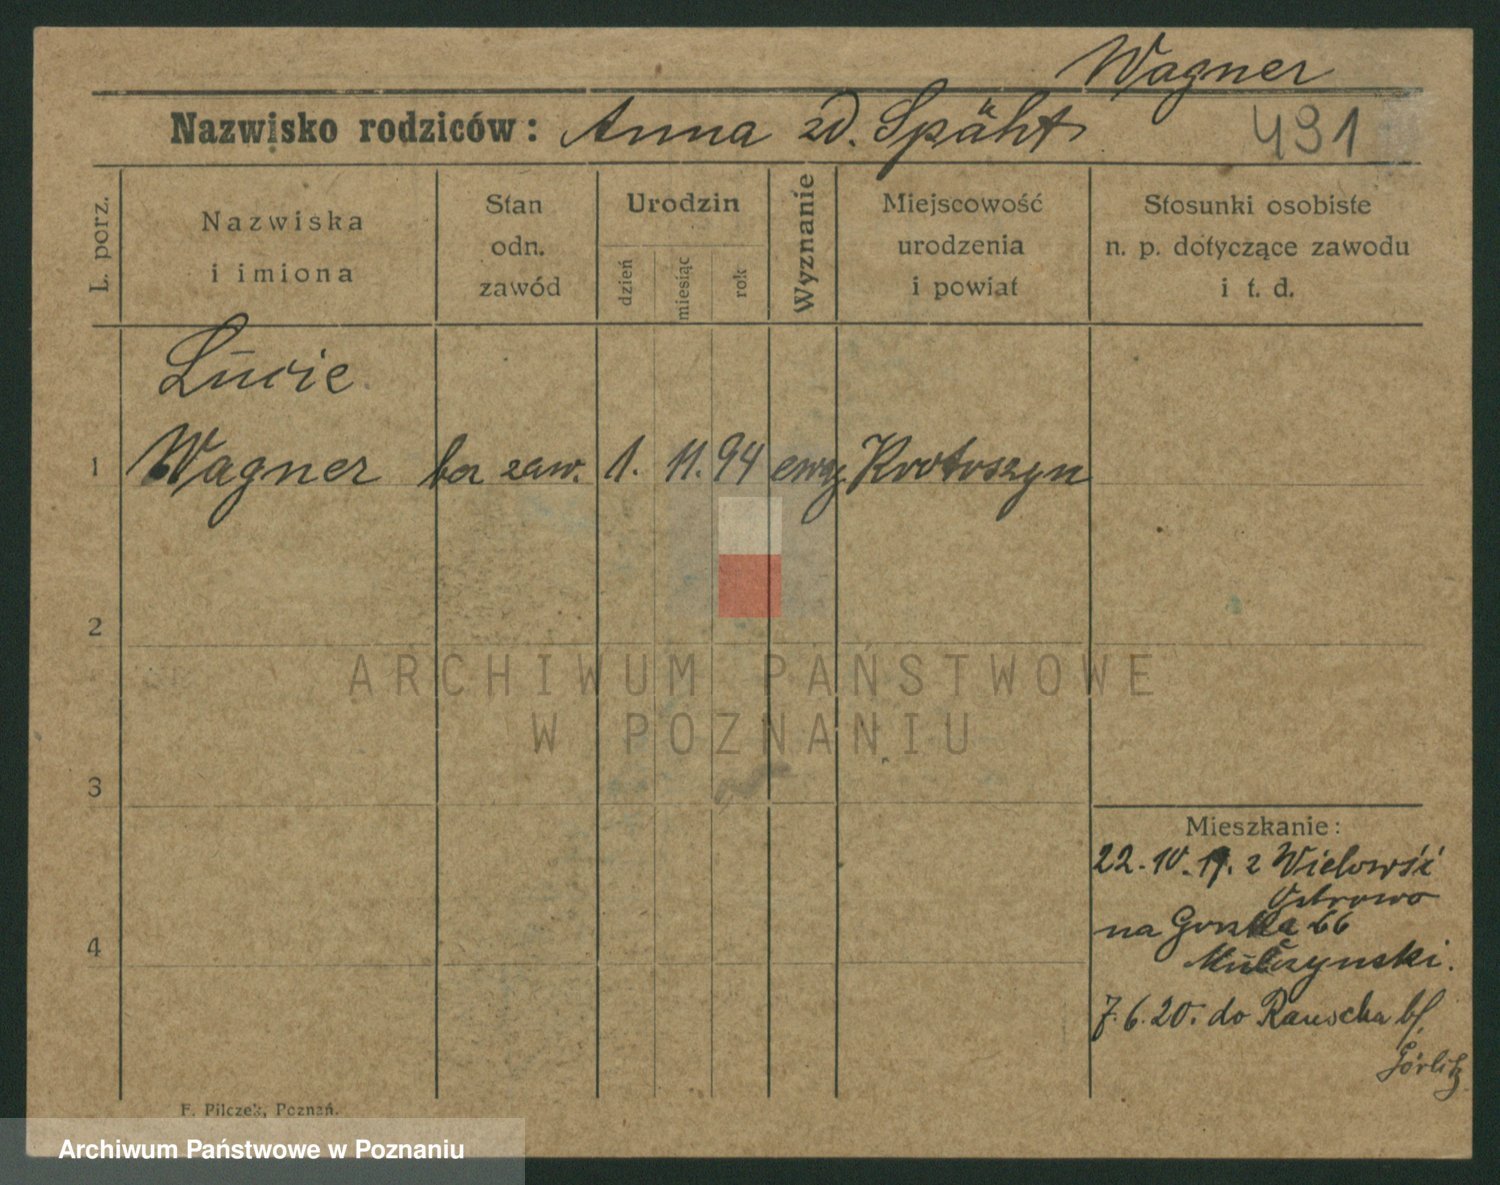 Wagner
Nazwisko rodziców: Anna zd. Späht
491
L. porz.
Nazwiska
i imiona
Stan
odn.
zawód
Urodzin
dzień
miesiąc
rok
Wyznanie
Miejscowość
urodzenia
i powiat
Stosunki osobiste
n. p. dotyczące zawodu
i t. d.
Lūcie
1 Wagner bez zaw. 1. 11. 94 ewg Krotoszyn
2
ARCHIWUM PAŃSTWOWE
W POZNANIU
3
Mieszkanie:
22.10.19. z Wielowsi
Ostrowo
4
na 66
7.6.20. do Rauscha b/
Görlitz
F. Pilczek, Poznań.
Archiwum Państwowe w Poznaniu